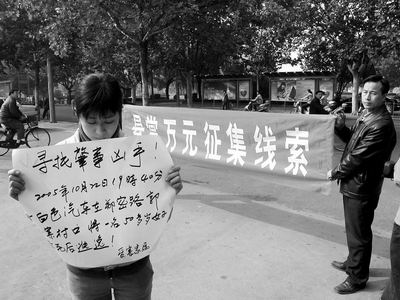 悬赏万元征集线索
寻找肇事凶手！
2005年10月22日19时40分
白色汽车在郑密路郭
村口将一名50多岁女子
死后逃逸！
受害家属